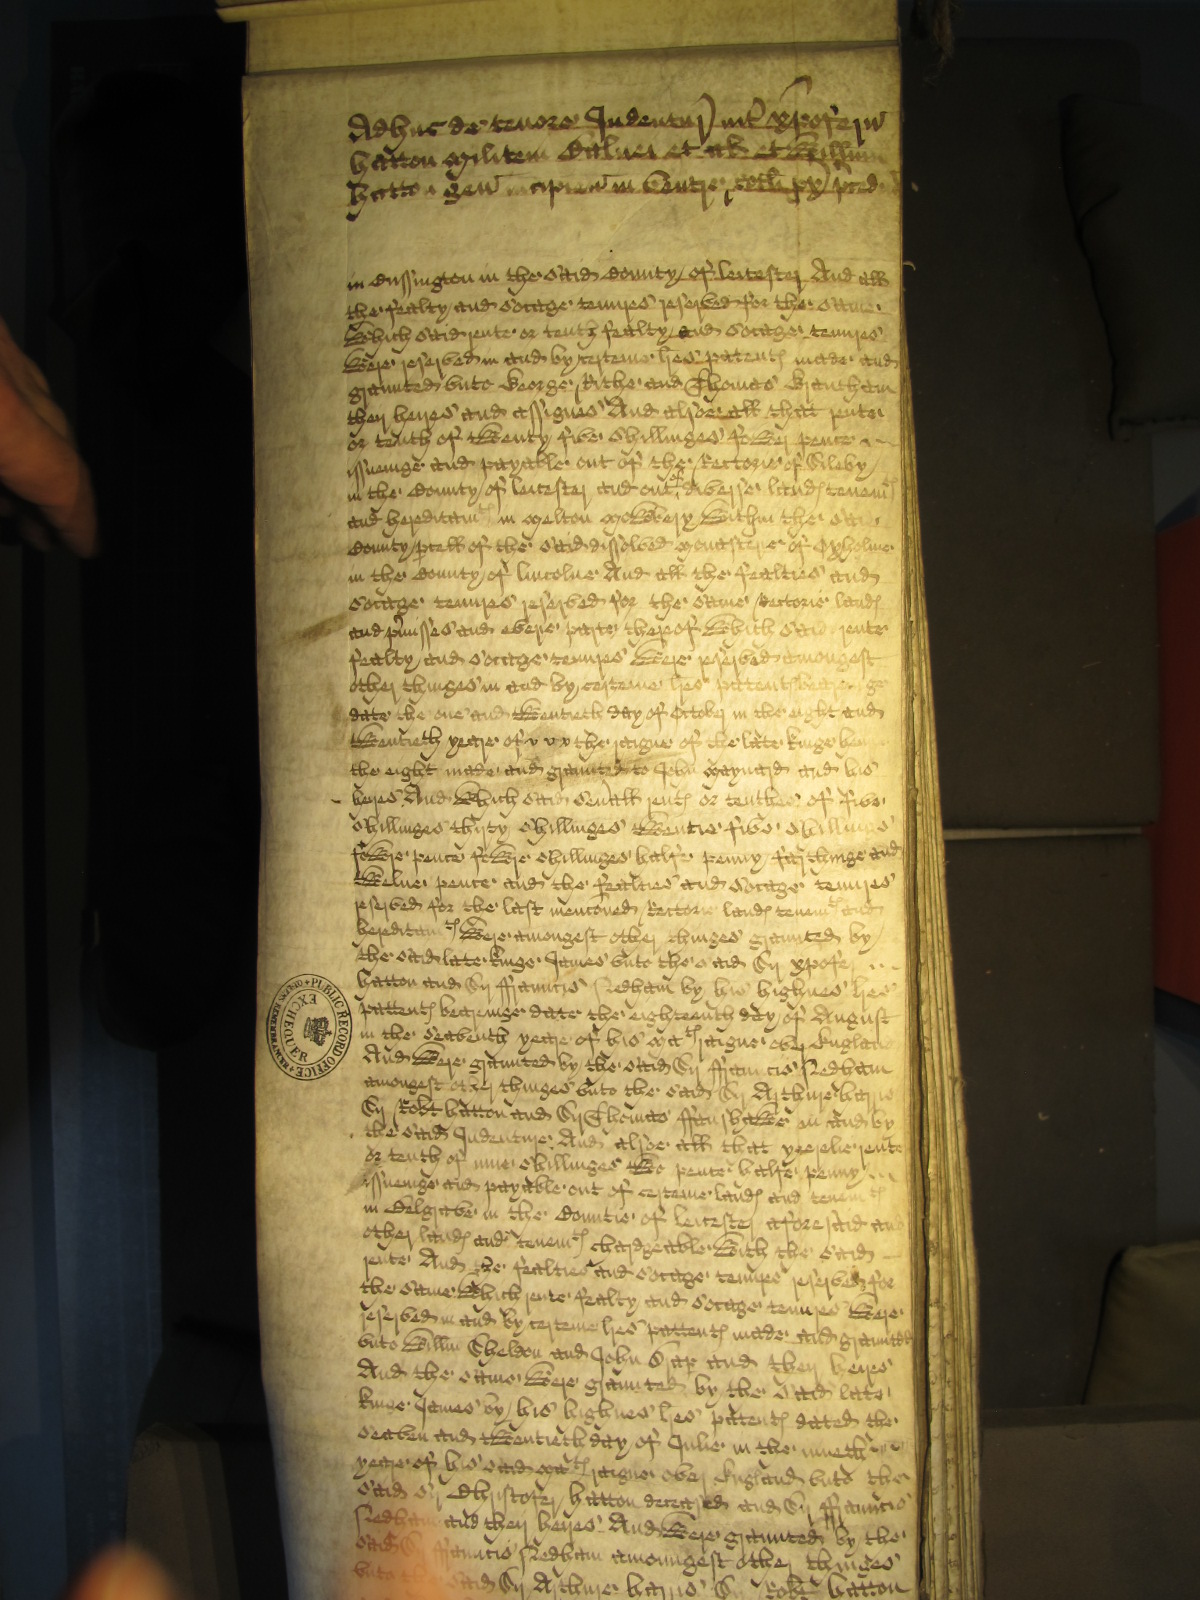 Adhuc de tenore Indentur int xpoferu
hatton militem Balnei et al et Willum
hatton gen incipien in
in Cussington in the said County of leicester And all
the fealty and socage tenures reserved for the same
Which said rente or tenth fealty and socage tenures
Were reserved in and by certeine lres patent made and
graunted unto George Rithe and Thomas Grantham
their heires and assignes And alsoe all that rente
or tenth of twenty five shillinges fower pence
issueinge and payable out of the Rectorie of Sileby
in the County of leicester and out of diverse land tenemts
and hereditamts in Melton Mowbery Within the said
County pcell of the said dissolved monasterie of Axholme
in the County of lincolne And all the fealties and
socage tenures reserved for the same Rectorie land
and pmisses and everie parte thereof Which said rente
fealty and socage tenures Were reserved amongest
other thinges in and by certeine lres pattent
date the one and twentieth day of October in the eight and
twentieth yeare of the raigne of the late kinge hen
the eight made and graunted to John Maynard and his
heires And Which said seuall rent or tenthes of five
shillinges thirty shillinges twentie five shillinges
fower pence fower shillinges halfe penny farthinge and
twelve pence and the fealties and socage tenures
reserved for the last mencioned Rectorie land tenemts and
hereditamts Were amongest other thinges graunted by
the said late kinge James unto the said Sr xpofer
hatton and Sr ffrauncis Nedham by his highnes lres
pattent bearinge date the eighteenth day of August
in the seaventh yeare of his Mats raigne over England
And Were graunted by the said Sr ffrauncis Nedham
amongest other thinges unto the said Sr Arthure harris
Sr Robt hatton and Sr Thomas ffanshawe in and by
the said Indenture And alsoe all that yeerelie rente
or tenth of nine shillinges two pence halfe penny
issueinge and payable out of certeine land and tenemts
in Belgrave in the Countie of leicester aforesaid and
other land and tenemts chardgeable With the said
rente And the fealties and socage tenures reserved for
the same Which rente fealty and socage tenures Were
reserved in and by certeine lres pattent made and graunted
unto Willm Sheldon and John and their heires
And the same Were graunted by the said late
kinge James by his highnes lres patent dated the
seaven and twentieth day of Julie in the nineth
yeare of his said Mats raigne over England unto the
said Sr Christofer hatton deceased and Sr ffrauncis
Nedham and their heires And Were graunted by the
said Sr ffrauncis Nedham amoungest other thinges
unto the said Sr Arthure harris Sr Robt hatton
PUBLIC RECORD OFFICE
EXCHEQUER